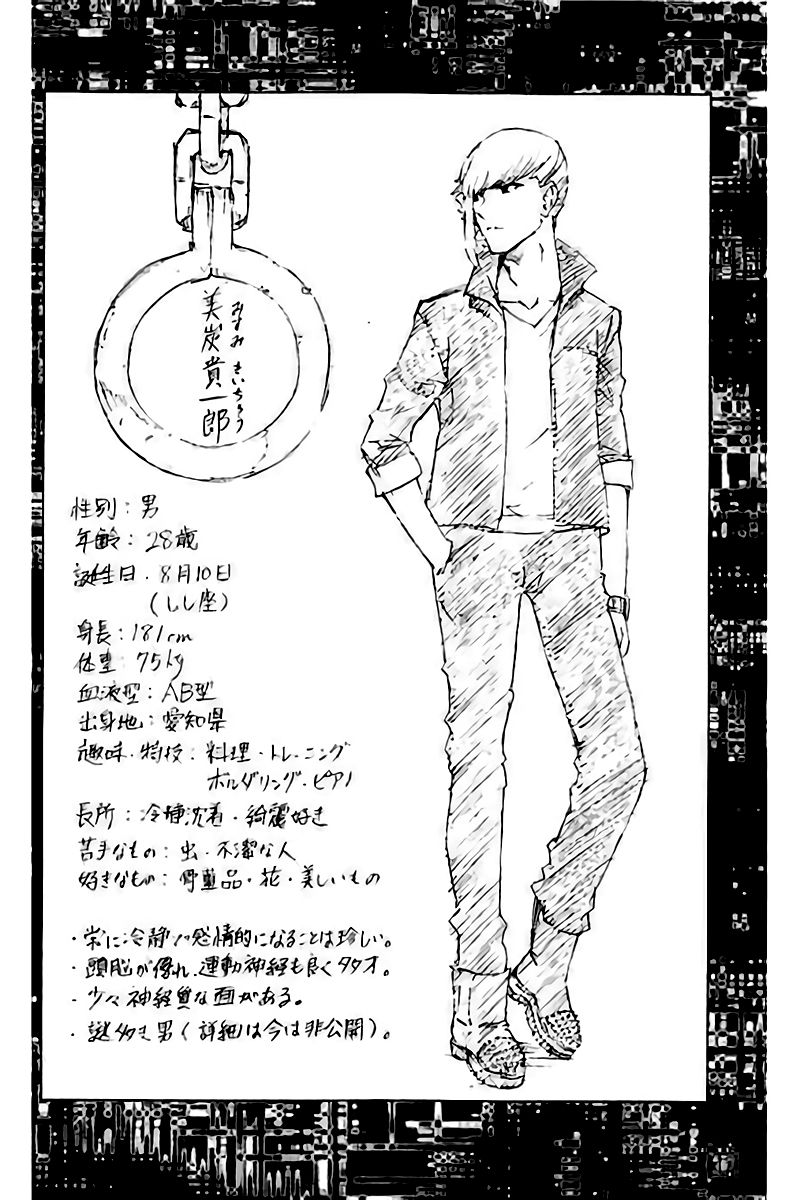 美炭貴一郎
みすみ きいちろう
性別:男
年齢:28歳
誕生日.8月10日
(しし座)
身長:181cm
体重:75kg
血液型:AB型
出身地:愛知県
趣味・特技:料理・トレーニング
ボルダリング・ピアノ
長所:冷静沈着・綺麗好き
苦手なもの:虫・不潔な人
好きなもの:骨董品・花・美しいもの
・常に冷静で感情的になることは珍しい。
・頭脳が優れ、運動神経も良くタタオ。
・少々神経質な面がある。
・謎多き男(詳細は今は非公開)。